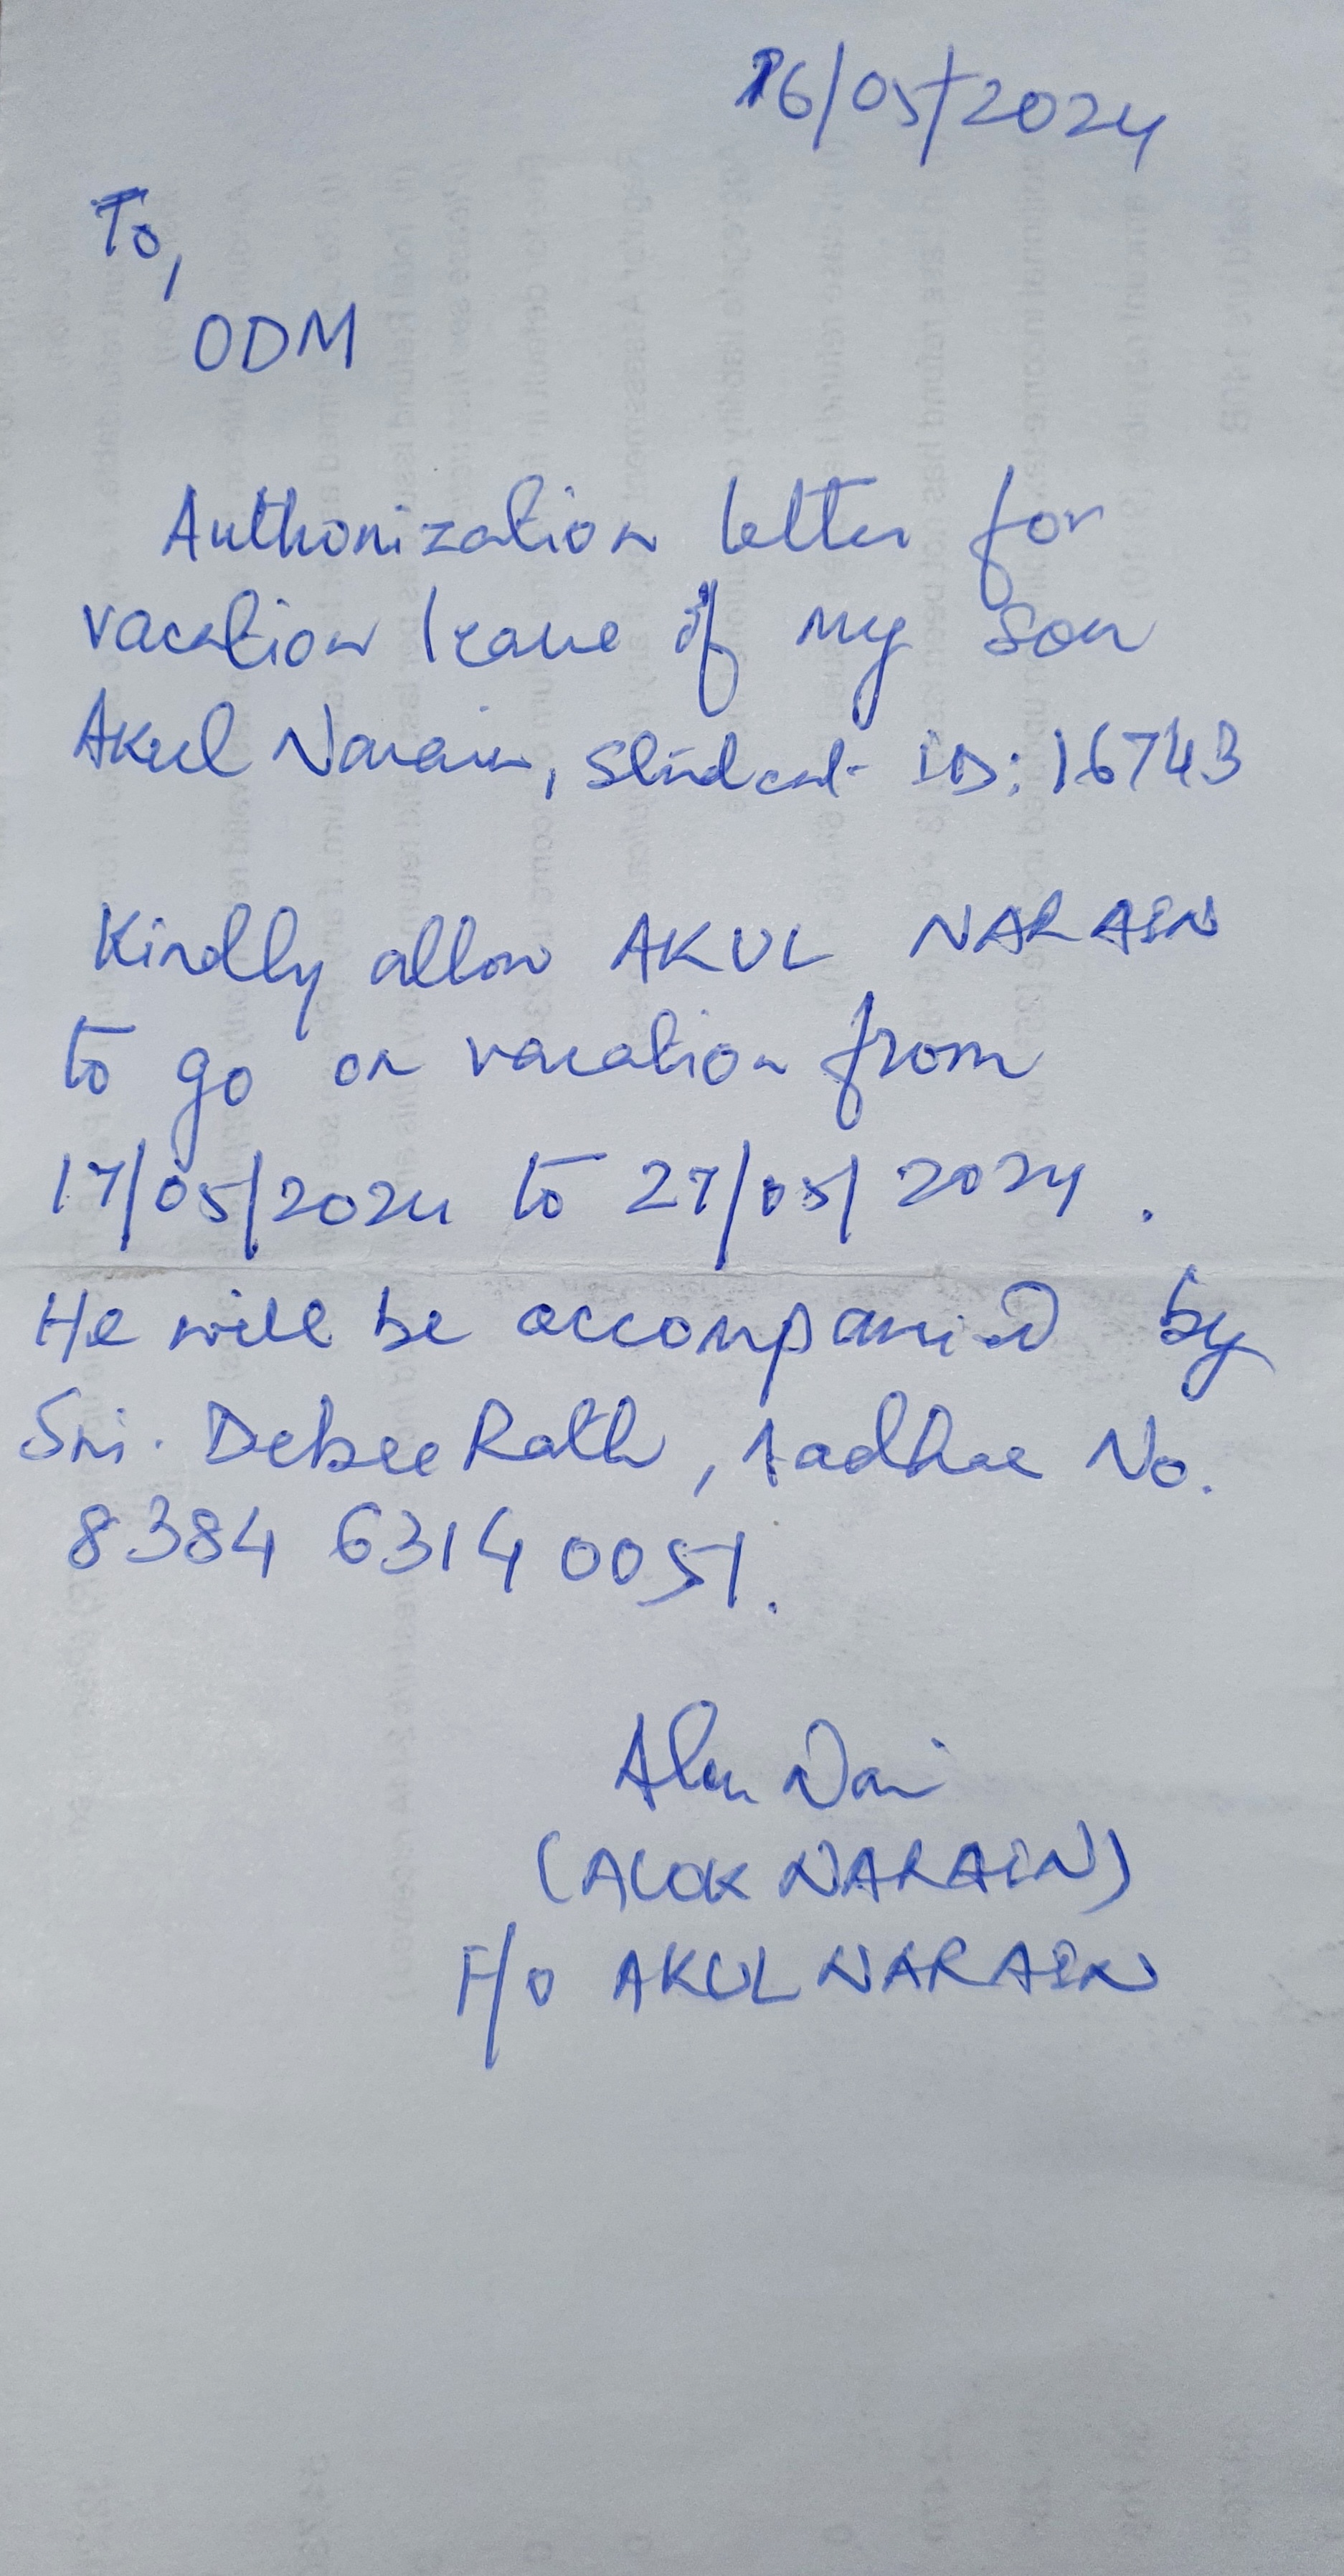 16/05/2024
To,
ODM
Authorization letter for
vacation leave of my son
Akul Narain, Student ID: 16743
Kindly allow AKUL NARAIN
to go on vacation from
17/05/2024 to 27/05/2024.
He will be accompanied by
Sri. Debee Rath, Aadhar No.
8384 6314 0051.
(ALOK NARAIN)
F/O AKUL NARAIN